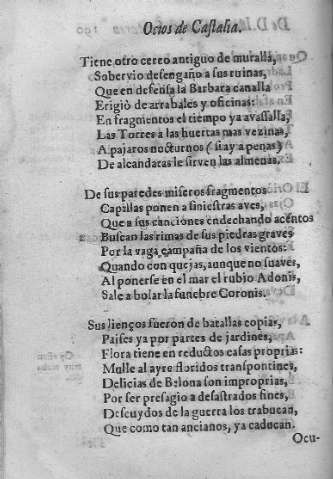 Ocios de Castalia.
Tiene otro cerco antiguo de muralla,
Sobervio desengaño a sus ruinas,
Que en defensa la Barbara canalla
Erigiò de arrabales y oficinas:
En fragmentos el tiempo ya avassalla,
Las Torres a las huertas mas vezinas,
A pajaros nocturnos ( si ay a penas )
De alcandaras le sirven las almenas.
De sus paredes miseros fragmentos
Capillas ponen a siniestras aves,
Que a sus canciones endechando acentos
Buscan las rimas de sus piedras graves
Por la vaga campaña de los vientos:
Quando con quejas, aunque no suaves,
Al ponerse en el mar el rubio Adonis,
Sale a bolar la funebre Coronis.
Sus lienços fueron de batallas copias,
Paises ya por partes de jardines,
Flora tiene en reductos casas proprias:
Mulle al ayre floridos transpontines,
Delicias de Belona son improprias,
Por ser presagio a desastrados fines,
Descuydos de la guerra los trabucan,
Que como tan ancianos, ya caducan.
Ocu-